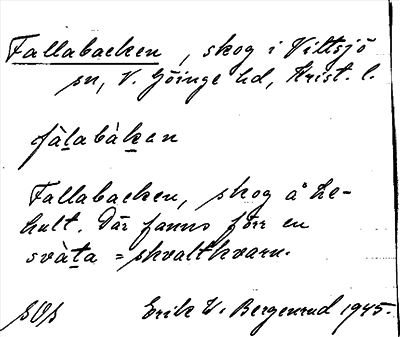 Fallabacken, skog i Vittsjö
sn, V. Göinge hd, Krist. l.
fàlabàkan
Fallabacken, skog å Le-
hult. Där fanns förr en
svàta = skvaltkvarn.
Erik W. Bergenrud 1945.